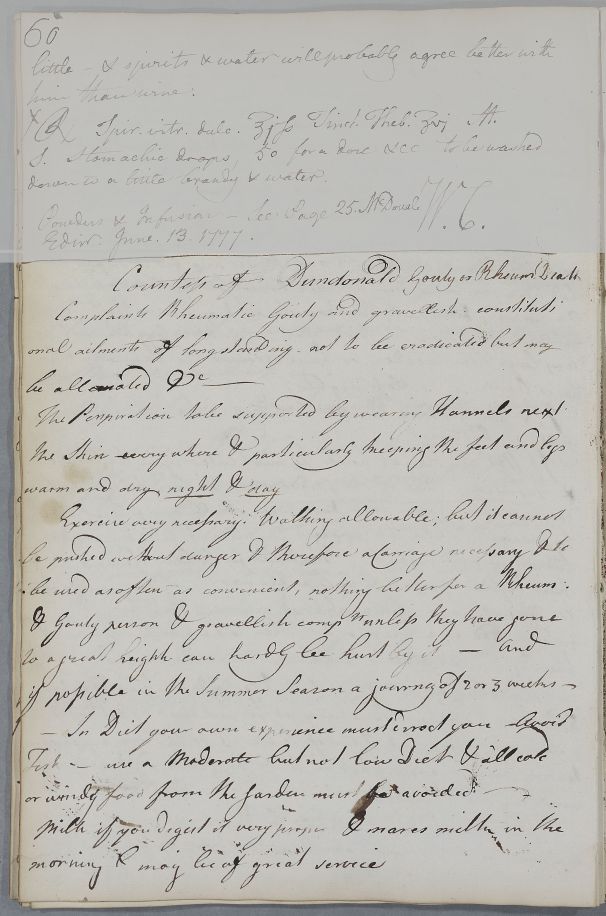 60
little - & spirits & water will probably agree better with
him than wine.
Spir. nitr. dulc. Tinct. Theb. M.
S. Stomachic drops, 50 for a dose &c to be washed
down wt a little brandy & water.
Powders & Infusion - See Page 25. McDouale W. C.
Edinr. June. 13. 1777.
Countess of Dundonald Gouty or Rheum
Complaints Rheumatic Gouty and gravellish: constituti
onal ailments of long standing. not to be eradicated but may
be alleviated &c
The Perspiration to be supported by wearing Flannels next
the Skin every where & particularly keeping the feet and legs
warm and dry night & day
Exercise very necessary. Walking allowable; but it cannot
be pushed without danger & therefore a Carriage necessary & to
be used as often as convenient, nothing better for a Rheum:
& Gouty person & gravellish compts unless they have gone
to a great height can hardly be hurt by it - and
if possible in the Summer Season a journey of 2 or 3 weeks -
- In Diet your own experience must direct you - Avoid
Fish - use a Moderate but not low Diet & all cold
or windy food from the Garden must be avoided -
Milk if you digest it very proper & mares milk in the
morning may be of great service